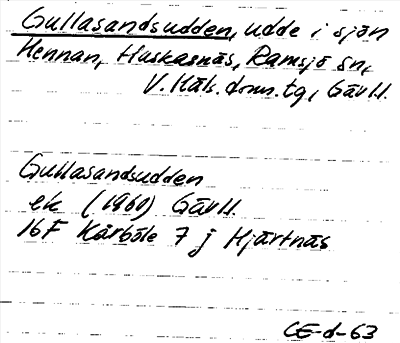 Gullasandsudden, udde i sjön
Hennan, Huskasnäs, Ramsjö sn,
V. Häls. dom.tg, Gävl.l.
Gullasandsudden
ek (1960) Gävl.l.
16F Kårböle 7 j Hjärtnäs
CE-d-63